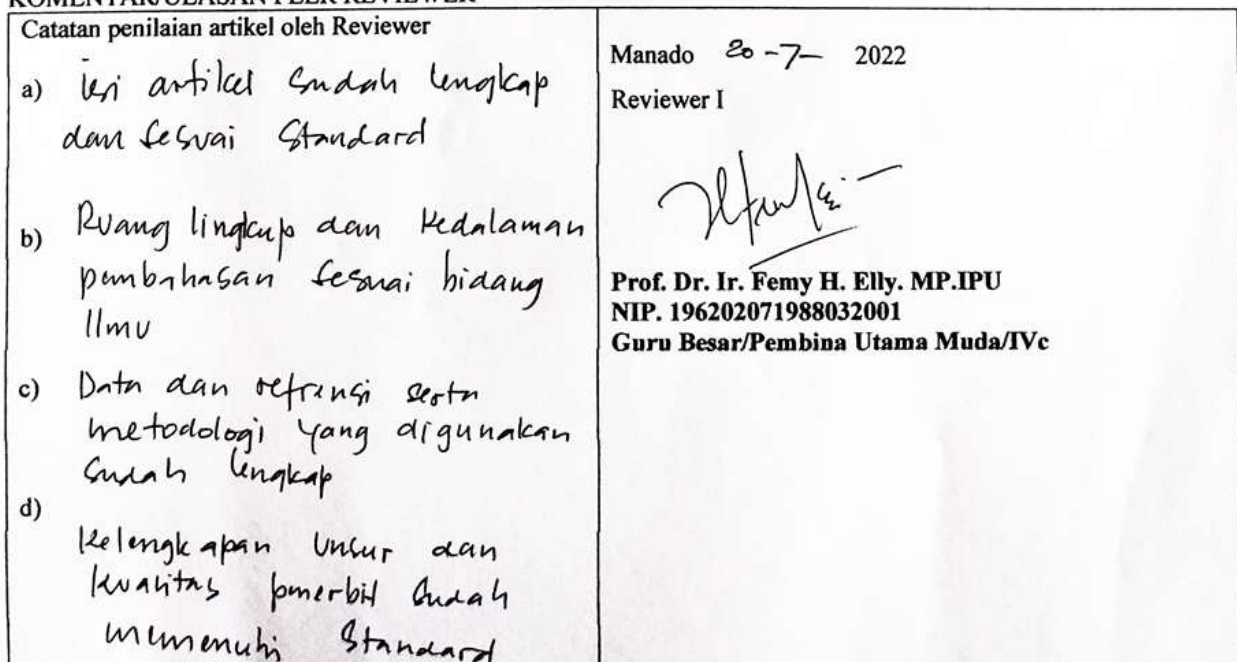 KOMENTAR/ULASAN PEER REVIEWER
Catatan penilaian artikel oleh Reviewer
a) isi artikel sudah lengkap
dan sesuai Standard
b) Ruang lingkup dan Kedalaman
pembahasan sesuai bidang
Ilmu
c) Data dan refrensi serta
metodologi yang digunakan
sudah lengkap
d)
Kelengkapan Unsur dan
kualitas penerbit sudah
memenuhi Standard
Manado 20-7- 2022
Reviewer I
Prof. Dr. Ir. Femy H. Elly. MP.IPU
NIP. 196202071988032001
Guru Besar/Pembina Utama Muda/IVc